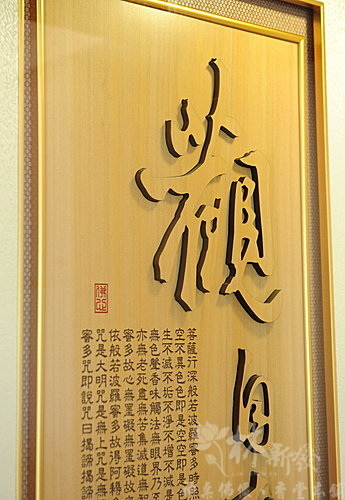 觀自
菩薩行深般若波羅蜜多時
空不異色色即是空空即是
生不滅不垢不淨不增不減
無色聲香味觸法無眼界乃
亦無老死盡無苦集滅道無智
蜜多故心無罣礙無罣礙故
依般若波羅蜜多故得阿耨
咒是大明咒是無上咒是無
蜜多咒即說咒曰揭諦揭諦